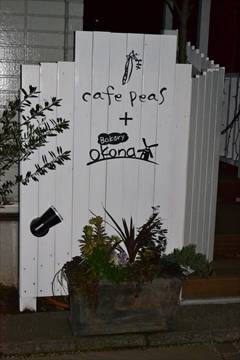 cafe peas
+
Bakery
OKona